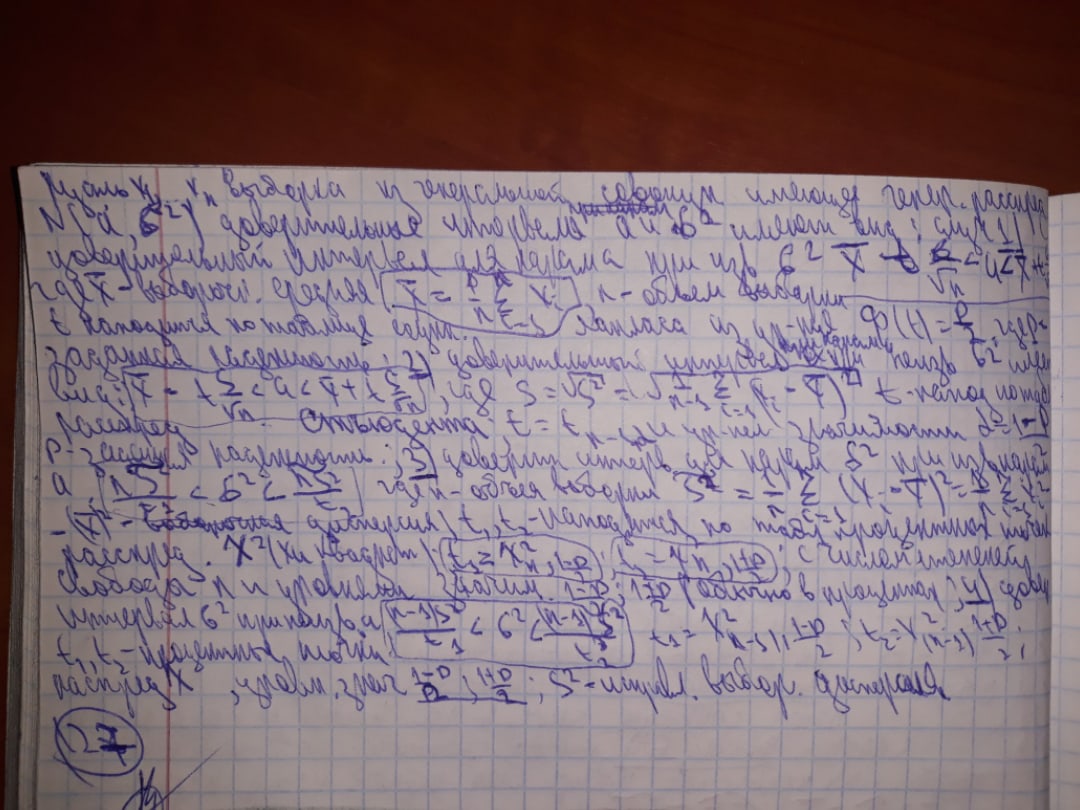 Пусть x₁ x_n выборка из генеральной совокупн имеющее генер. распред
N(a, б²) доверительные интервалы параметров a и б² имеют вид: 1)
доверительный интервал для парама при изв б² X̅ - t б/√n < a < X̅ + t
где X̅ - выбороч. средняя X̅ = 1/n Σ xᵢ n - объем выборки
t находится по таблице Лапласа из ур-ния Ф(t) = P/2, где P
заданная надежность; 2) доверительный интервал при неизв б² имеет
вид: X̅ - t S/√n < a < X̅ + t S/√n, где S = √S² = √ 1/(n-1) Σ (xᵢ - X̅)² t - наход по таб
распред Стьюдента t = t n-1, ур-нем значимости α = 1-P
P - заданная надежность; 3) доверит интерв для парам б² при изв парам
a nS̅²/t₁ < б² < nS̅²/t₂ где n - объем выборки S̅² = 1/n Σ (xᵢ - X̅)² = 1/n Σ xᵢ²
- (X̅)² - дисперсия, t₁, t₂ - находятся по табл процентных точек
распред. X² (хи квадрат) t₁ = X²n, 1-P/2, t₂ = X²n, 1+P/2, с числом степеней
свободы n и уровнями значим. 1-P/2; 1+P/2 (обычно в процентах); 4) довер
интервал б² при неизв a (n-1)S²/t₁ < б² < (n-1)S²/t₂ t₁ = X² n-1, 1-P/2; t₂ = X²(n-1) 1+P/2;
t₁, t₂ - процентные точки
распред X², уровн. знач 1-P/2; 1+P/2; S² - исправл. выбор. дисперсия
27